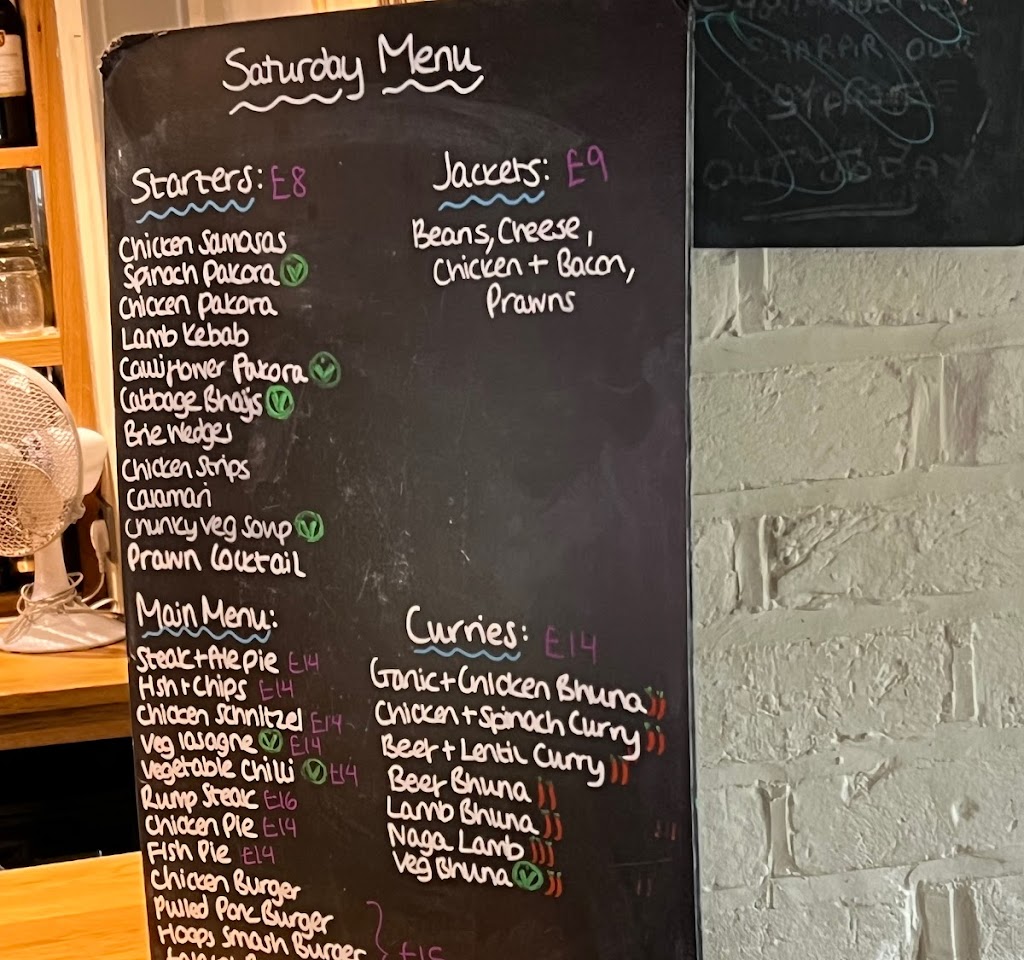 Saturday Menu
Starters: £8
Chicken Samosas
Spinach Pakora V
Chicken Pakora
Lamb Kebab
Cauliflower Pakora V
Cabbage Bhajis V
Brie Wedges
Chicken Strips
Calamari
Chunky Veg Soup V
Prawn Cocktail
Jackets: £9
Beans, Cheese,
Chicken + Bacon,
Prawns
Main Menu:
Steak + Ale Pie £14
Fish + Chips £14
Chicken Schnitzel £14
Veg Lasagne V £14
Vegetable Chilli V £14
Rump Steak £16
Chicken Pie £14
Fish Pie £14
Chicken Burger
Pulled Pork Burger
Hoops Smash Burger £15
Curries: £14
Garlic + Chicken Bhuna
Chicken + Spinach Curry
Beef + Lentil Curry
Beef Bhuna
Lamb Bhuna
Naga Lamb
Veg Bhuna V
OUR